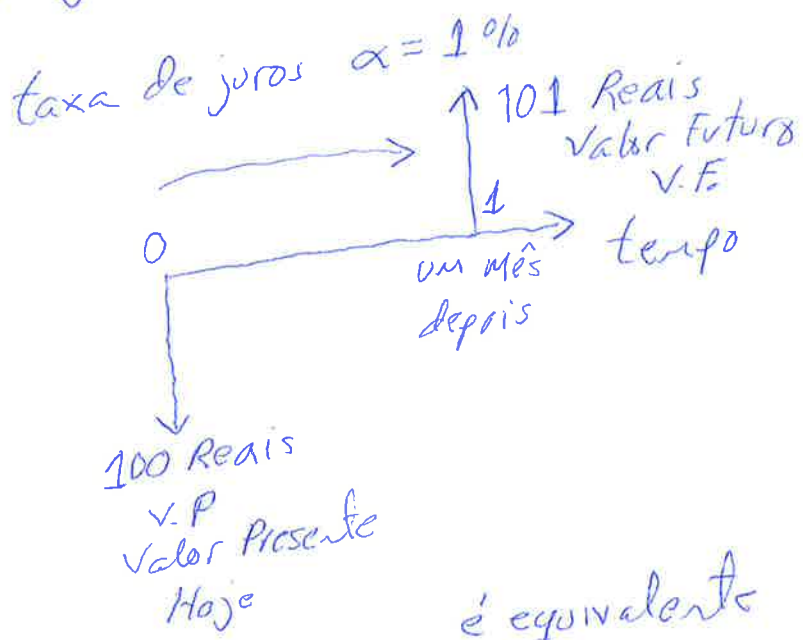 taxa de juros α = 1%
101 Reais
Valor Futuro
V.F.
0
1
tempo
um mês
depois
100 Reais
V.P
Valor Presente
Hoje
é equivalente